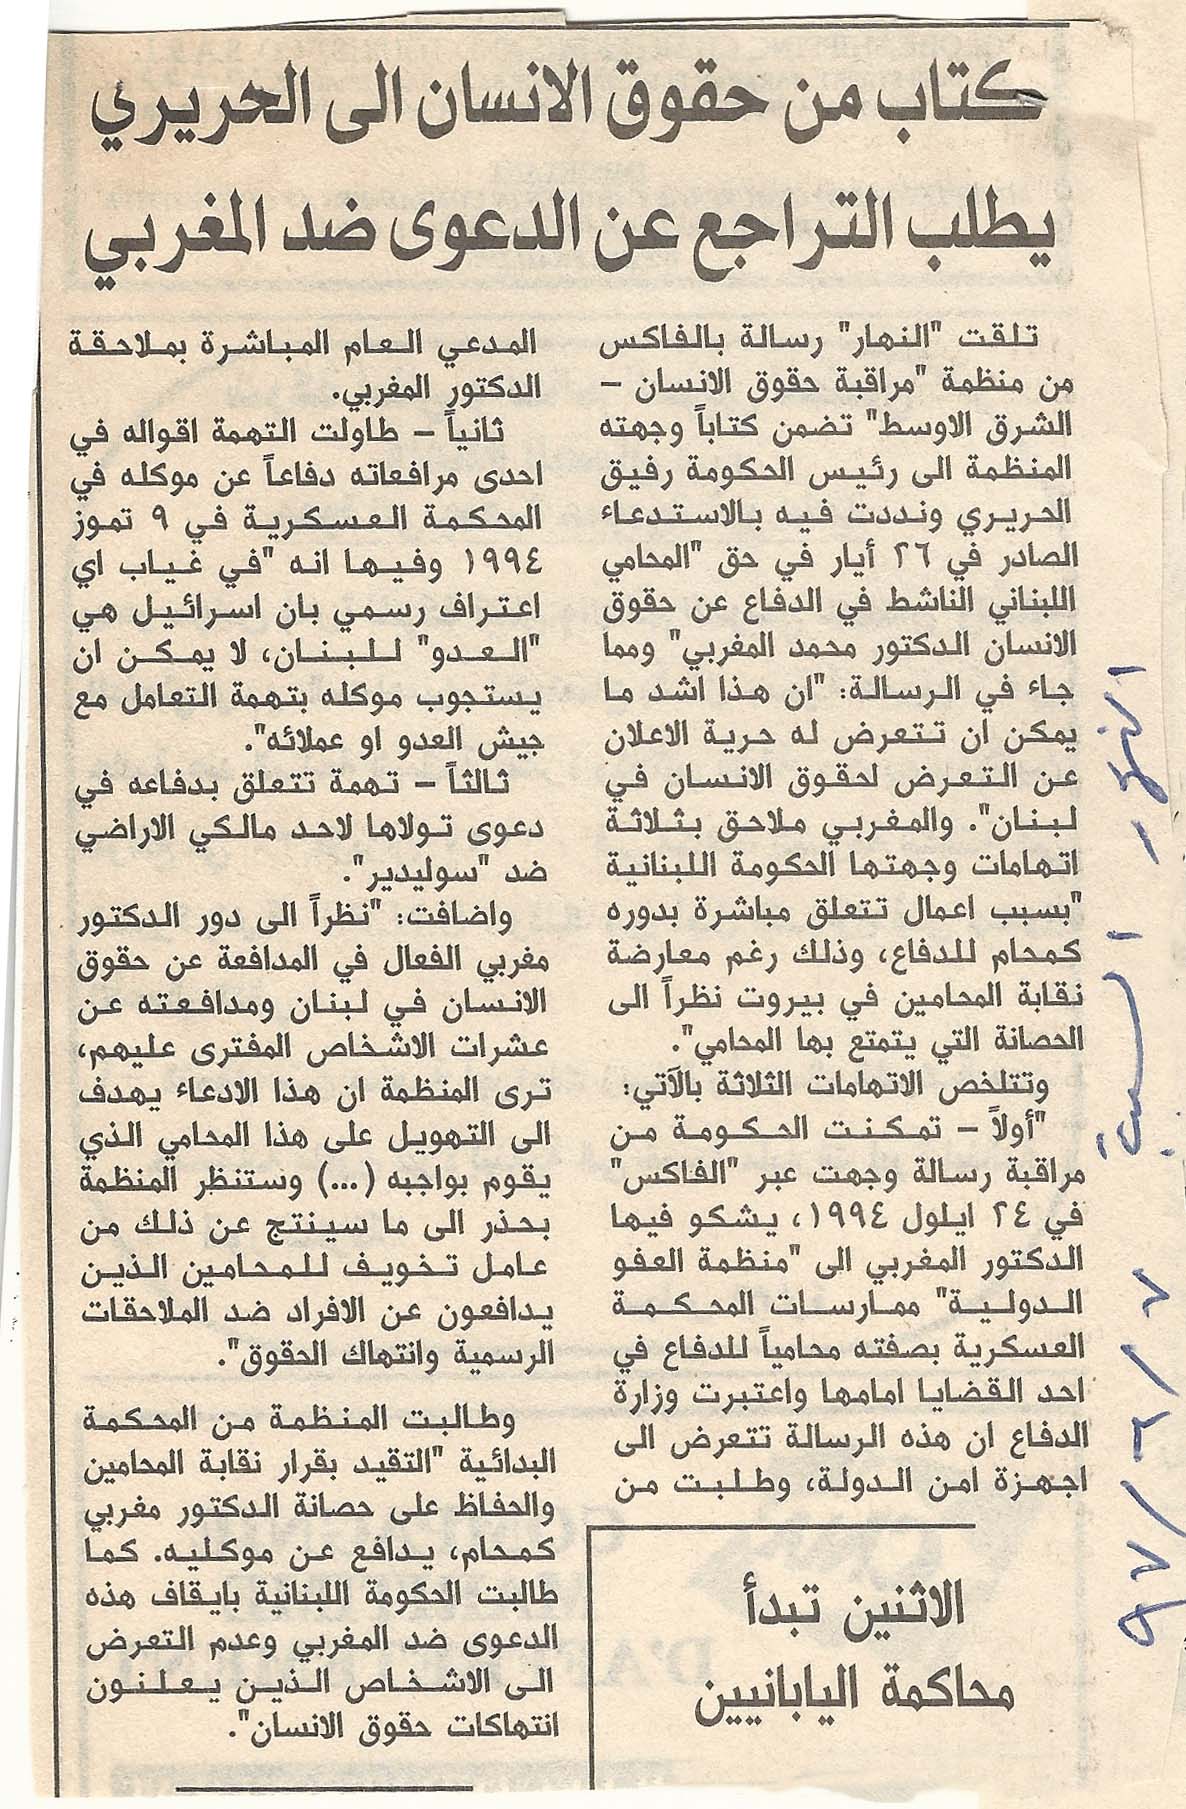 كتاب من حقوق الانسان الى الحريري
يطلب التراجع عن الدعوى ضد المغربي
تلقت "النهار" رسالة بالفاكس
من منظمة "مراقبة حقوق الانسان –
الشرق الاوسط" تضمن كتاباً وجهته
المنظمة الى رئيس الحكومة رفيق
الحريري ونددت فيه بالاستدعاء
الصادر في ٢٦ أيار في حق "المحامي
اللبناني الناشط في الدفاع عن حقوق
الانسان الدكتور محمد المغربي" ومما
جاء في الرسالة: "ان هذا اشد ما
يمكن ان تتعرض له حرية الاعلان
عن التعرض لحقوق الانسان في
لبنان". والمغربي ملاحق بثلاثة
اتهامات وجهتها الحكومة اللبنانية
"بسبب اعمال تتعلق مباشرة بدوره
كمحام للدفاع، وذلك رغم معارضة
نقابة المحامين في بيروت نظراً الى
الحصانة التي يتمتع بها المحامي".
وتتلخص الاتهامات الثلاثة بالآتي:
"أولاً – تمكنت الحكومة من
مراقبة رسالة وجهت عبر "الفاكس"
في ٢٤ ايلول ١٩٩٤، يشكو فيها
الدكتور المغربي الى "منظمة العفو
الدولية" ممارسات المحكمة
العسكرية بصفته محامياً للدفاع في
احد القضايا امامها واعتبرت وزارة
الدفاع ان هذه الرسالة تتعرض الى
اجهزة امن الدولة، وطلبت من
المدعي العام المباشرة بملاحقة
الدكتور المغربي.
ثانياً – طاولت التهمة اقواله في
احدى مرافعاته دفاعاً عن موكله في
المحكمة العسكرية في ٩ تموز
١٩٩٤ وفيها انه "في غياب اي
اعتراف رسمي بان اسرائيل هي
"العدو" للبنان، لا يمكن ان
يستجوب موكله بتهمة التعامل مع
جيش العدو او عملائه".
ثالثاً – تهمة تتعلق بدفاعه في
دعوى تولاها لاحد مالكي الاراضي
ضد "سوليدير".
واضافت: "نظراً الى دور الدكتور
مغربي الفعال في المدافعة عن حقوق
الانسان في لبنان ومدافعته عن
عشرات الاشخاص المفترى عليهم،
ترى المنظمة ان هذا الادعاء يهدف
الى التهويل على هذا المحامي الذي
يقوم بواجبه (...) وستنظر المنظمة
بحذر الى ما سينتج عن ذلك من
عامل تخويف للمحامين الذين
يدافعون عن الافراد ضد الملاحقات
الرسمية وانتهاك الحقوق".
وطالبت المنظمة من المحكمة
البدائية "التقيد بقرار نقابة المحامين
والحفاظ على حصانة الدكتور مغربي
كمحام، يدافع عن موكليه. كما
طالبت الحكومة اللبنانية بايقاف هذه
الدعوى ضد المغربي وعدم التعرض
الى الاشخاص الذين يعلنون
انتهاكات حقوق الانسان".
الاثنين تبدأ
محاكمة اليابانيين
النهار – السبت ٧/٦/٩٧